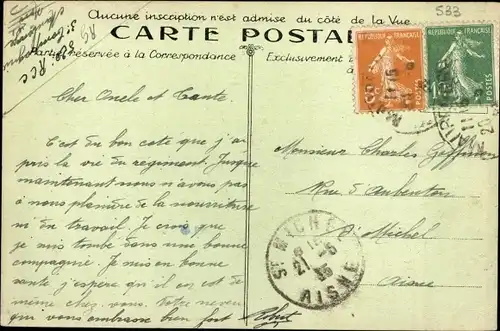 533
Aucune inscription n'est admise du côté de la Vue
CARTE POSTALE
Partie réservée à la Correspondance
Exclusivement
RÉPUBLIQUE FRANÇAISE
POSTES
Cher Oncle et Tante.
C'est du bon coté que j'ai
pris la vie du régiment. Jusque
maintenant nous n'avons pas
à nous plaindre de la nourriture
ni du travail. Je crois que
je suis tombé dans une bonne
compagnie. Je suis en bonne
santé j'espère qu'il en est de
même chez vous. Votre neveu
qui vous embrasse bien fort
Monsieur Charles
Rue d'Aubenton
St Michel
Aisne
ST MICHEL
21-5
35
AISNE